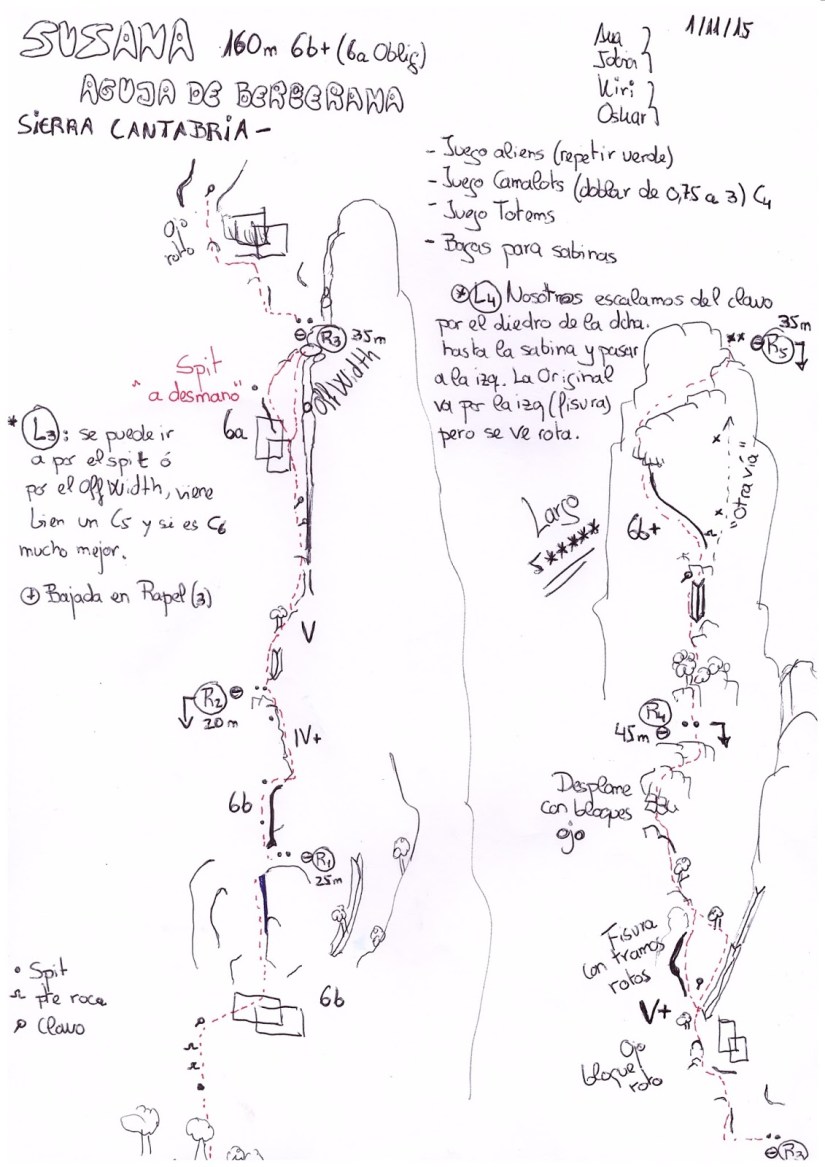 SUSANA 160m 6b+ (6a Oblig)
AGUJA DE BERBERANA
SIERRA CANTABRIA -
1/11/15
Kiri
Oskar
- Juego aliens (repetir verde)
- Juego Camalots (doblar de 0,75 a 3) C4
- Juego Totems
- Bagas para sabinas
* L4 Nosotros escalamos del clavo
por el diedro de la dcha.
hasta la sabina y pasar
a la izq. La Original
va por la izq (fisura)
pero se ve rota.
Ojo
roto
R3 35m
Off Width
Spit
"a desmano"
6a
* L3: se puede ir
a por el spit ó
por el Off Width, viene
bien un C5 y si es C6
mucho mejor.
+ Bajada en Rapel (3)
V
R2
20m
IV+
6b
R1
25m
6b
Spit
pte roca
Clavo
35m
R5
"Otra vía"
6b+
Largo
5*****
R4
45m
Desplome
con bloques
ojo
Fisura
con tramos
rotos
V+
Ojo
bloque
roto
R3